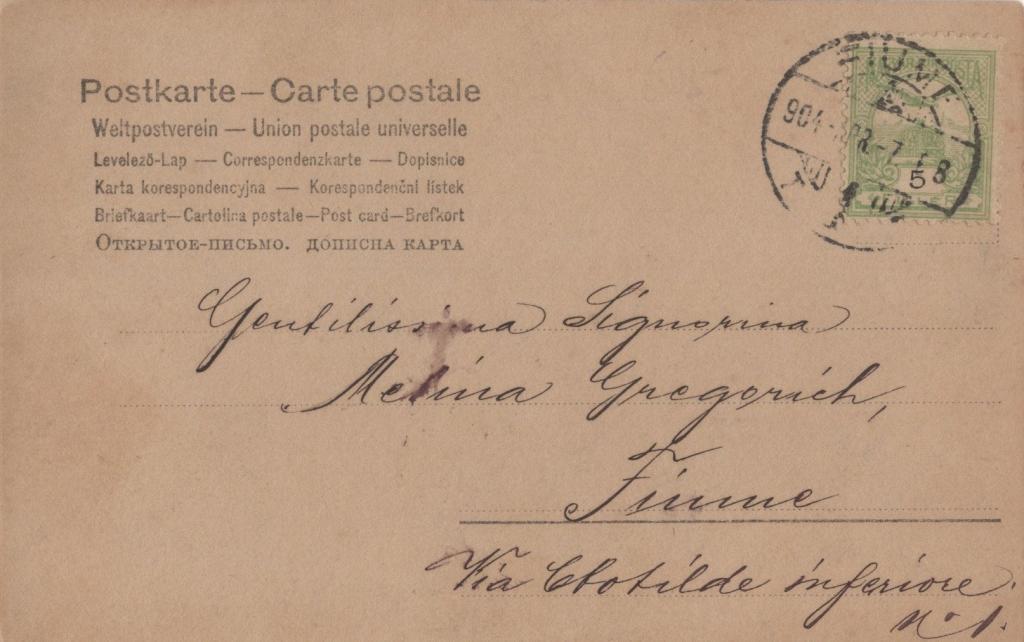 Postkarte — Carte postale
Weltpostverein — Union postale universelle
Levelező-Lap — Correspondenzkarte — Dopisnice
Karta korespondencyjna — Korespondenční lístek
Briefkaart — Cartolina postale — Post card — Brefkort
Открытое-письмо. дописна карта
FIUME
904
5
Gentilissima Signorina
Melina Gregorich,
Fiume
Via Clotilde inferiore
No 1.